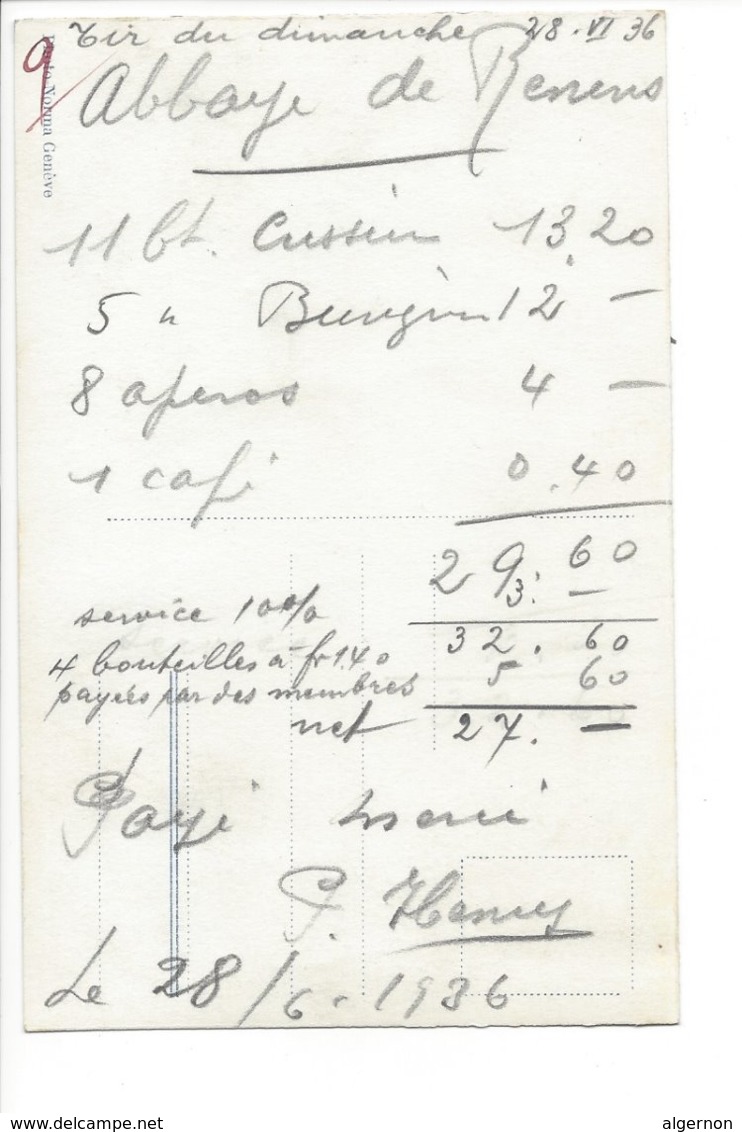 Tir du dimanche 28.VI 36
Abbaye de Renens
9
Photo Norma Genève
11 bt. Crissier 13.20
5 " 12 —
8 aperos 4 —
1 café 0.40
29.60
3. —
service 10% 32.60
4 bouteilles à fr 1.40 5 60
payées par des membres
net 27. —
Payé merci
P. Henry
Le 28/6. 1936
delcampe.net
algernon